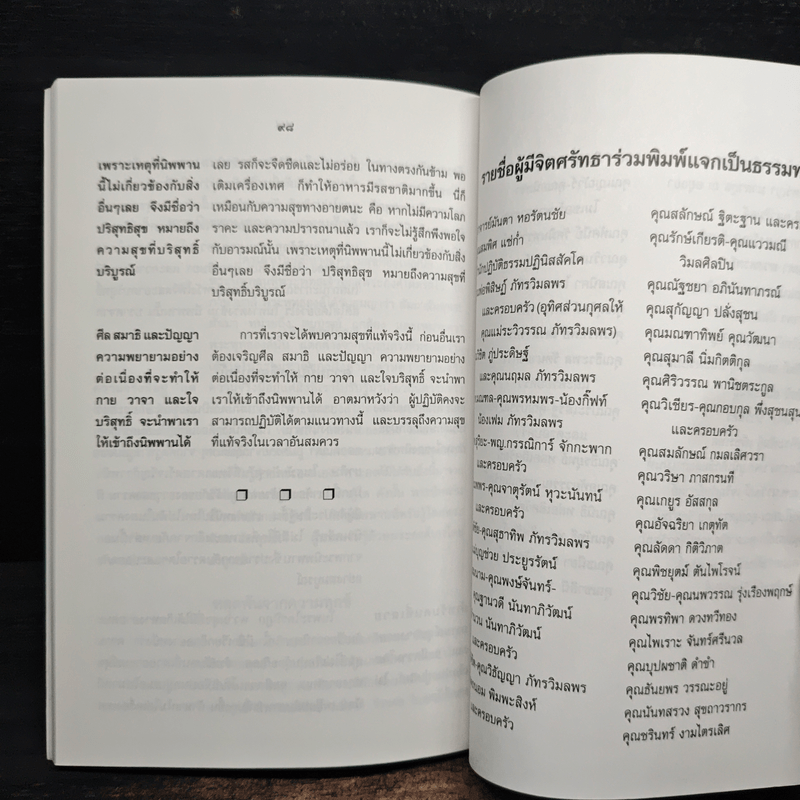 ๙๘
เพราะเหตุที่นิพพาน
นี้ไม่เกี่ยวข้องกับสิ่ง
อื่นๆเลย จึงมีชื่อว่า
ปริสุทธิสุข หมายถึง
ความสุขที่บริสุทธิ์
บริบูรณ์
เลย รสก็จะจืดชืดและไม่อร่อย ในทางตรงกันข้าม พอ
เติมเครื่องเทศ ก็ทำให้อาหารมีรสชาติมากขึ้น นี่ก็
เหมือนกับความสุขทางอายตนะ คือ หากไม่มีความโลภ
ราคะ และความปรารถนาแล้ว เราก็จะไม่รู้สึกพึงพอใจ
กับอารมณ์นั้น เพราะเหตุที่นิพพานนี้ไม่เกี่ยวข้องกับสิ่ง
อื่นๆเลย จึงมีชื่อว่า ปริสุทธิสุข หมายถึงความสุขที่
บริสุทธิ์บริบูรณ์
ศีล สมาธิ และปัญญา
ความพยายามอย่าง
ต่อเนื่องที่จะทำให้
กาย วาจา และใจ
บริสุทธิ์ จะนำพาเรา
ให้เข้าถึงนิพพานได้
การที่เราจะได้พบความสุขที่แท้จริงนี้ ก่อนอื่นเรา
ต้องเจริญศีล สมาธิ และปัญญา ความพยายามอย่าง
ต่อเนื่องที่จะทำให้ กาย วาจา และใจบริสุทธิ์ จะนำพา
เราให้เข้าถึงนิพพานได้ อาตมาหวังว่า ผู้ปฏิบัติคงจะ
สามารถปฏิบัติได้ตามแนวทางนี้ และบรรลุถึงความสุข
ที่แท้จริงในเวลาอันสมควร
รายชื่อผู้มีจิตศรัทธาร่วมพิมพ์แจกเป็นธรรมท
มันตา หอรัตนชัย
แซ่ก่ำ
ภัทรวิมลพร
และครอบครัว (อุทิศส่วนกุศลให้
คุณแม่ระวิวรรณ ภัทรวิมลพร)
ภู่ประดิษฐ์
และคุณนฤมล ภัทรวิมลพร
คุณพรหมพร-น้องกิ๊ฟท์
น้องเฟม ภัทรวิมลพร
พญ.กรรณิการ์ จักกะพาก
และครอบครัว
คุณจาตุรัตน์ หุวะนันทน์
และครอบครัว
คุณสุธาทิพ ภัทรวิมลพร
ประยูรรัตน์
คุณพงษ์จันทร์-
นันทาภิวัฒน์
นันทาภิวัฒน์
และครอบครัว
คุณวิธัญญา ภัทรวิมลพร
พิมพะสิงห์
และครอบครัว
คุณสลักษณ์ ฐิตะฐาน และคร
คุณรักษ์เกียรติ-คุณแววมณี
วิมลศิลปิน
คุณณัฐชยา อภินันทาภรณ์
คุณสุกัญญา ปลั่งสุชน
คุณมณฑาทิพย์ คุณวัฒนา
คุณสุมาลี นิ่มกิตติกุล
คุณศิริวรรณ พานิชตระกูล
คุณวิเชียร-คุณกอบกุล พึ่งสุชนสุน
และครอบครัว
คุณสมลักษณ์ กมลเลิศวรา
คุณวริษา ภาสกรนที
คุณเกยูร อัสสกุล
คุณอัจฉริยา เกตุทัต
คุณลัดดา กิติวิภาต
คุณพิชยุตม์ ตันไพโรจน์
คุณวิชัย-คุณนพวรรณ รุ่งเรืองพฤกษ์
คุณพรทิพา ดวงทวีทอง
คุณไพเราะ จันทร์ศรีนวล
คุณบุปผชาติ ดำขำ
คุณธันยพร วรรณะอยู่
คุณนันทสรวง สุขถาวรากร
คุณชรินทร์ งามไตรเลิศ